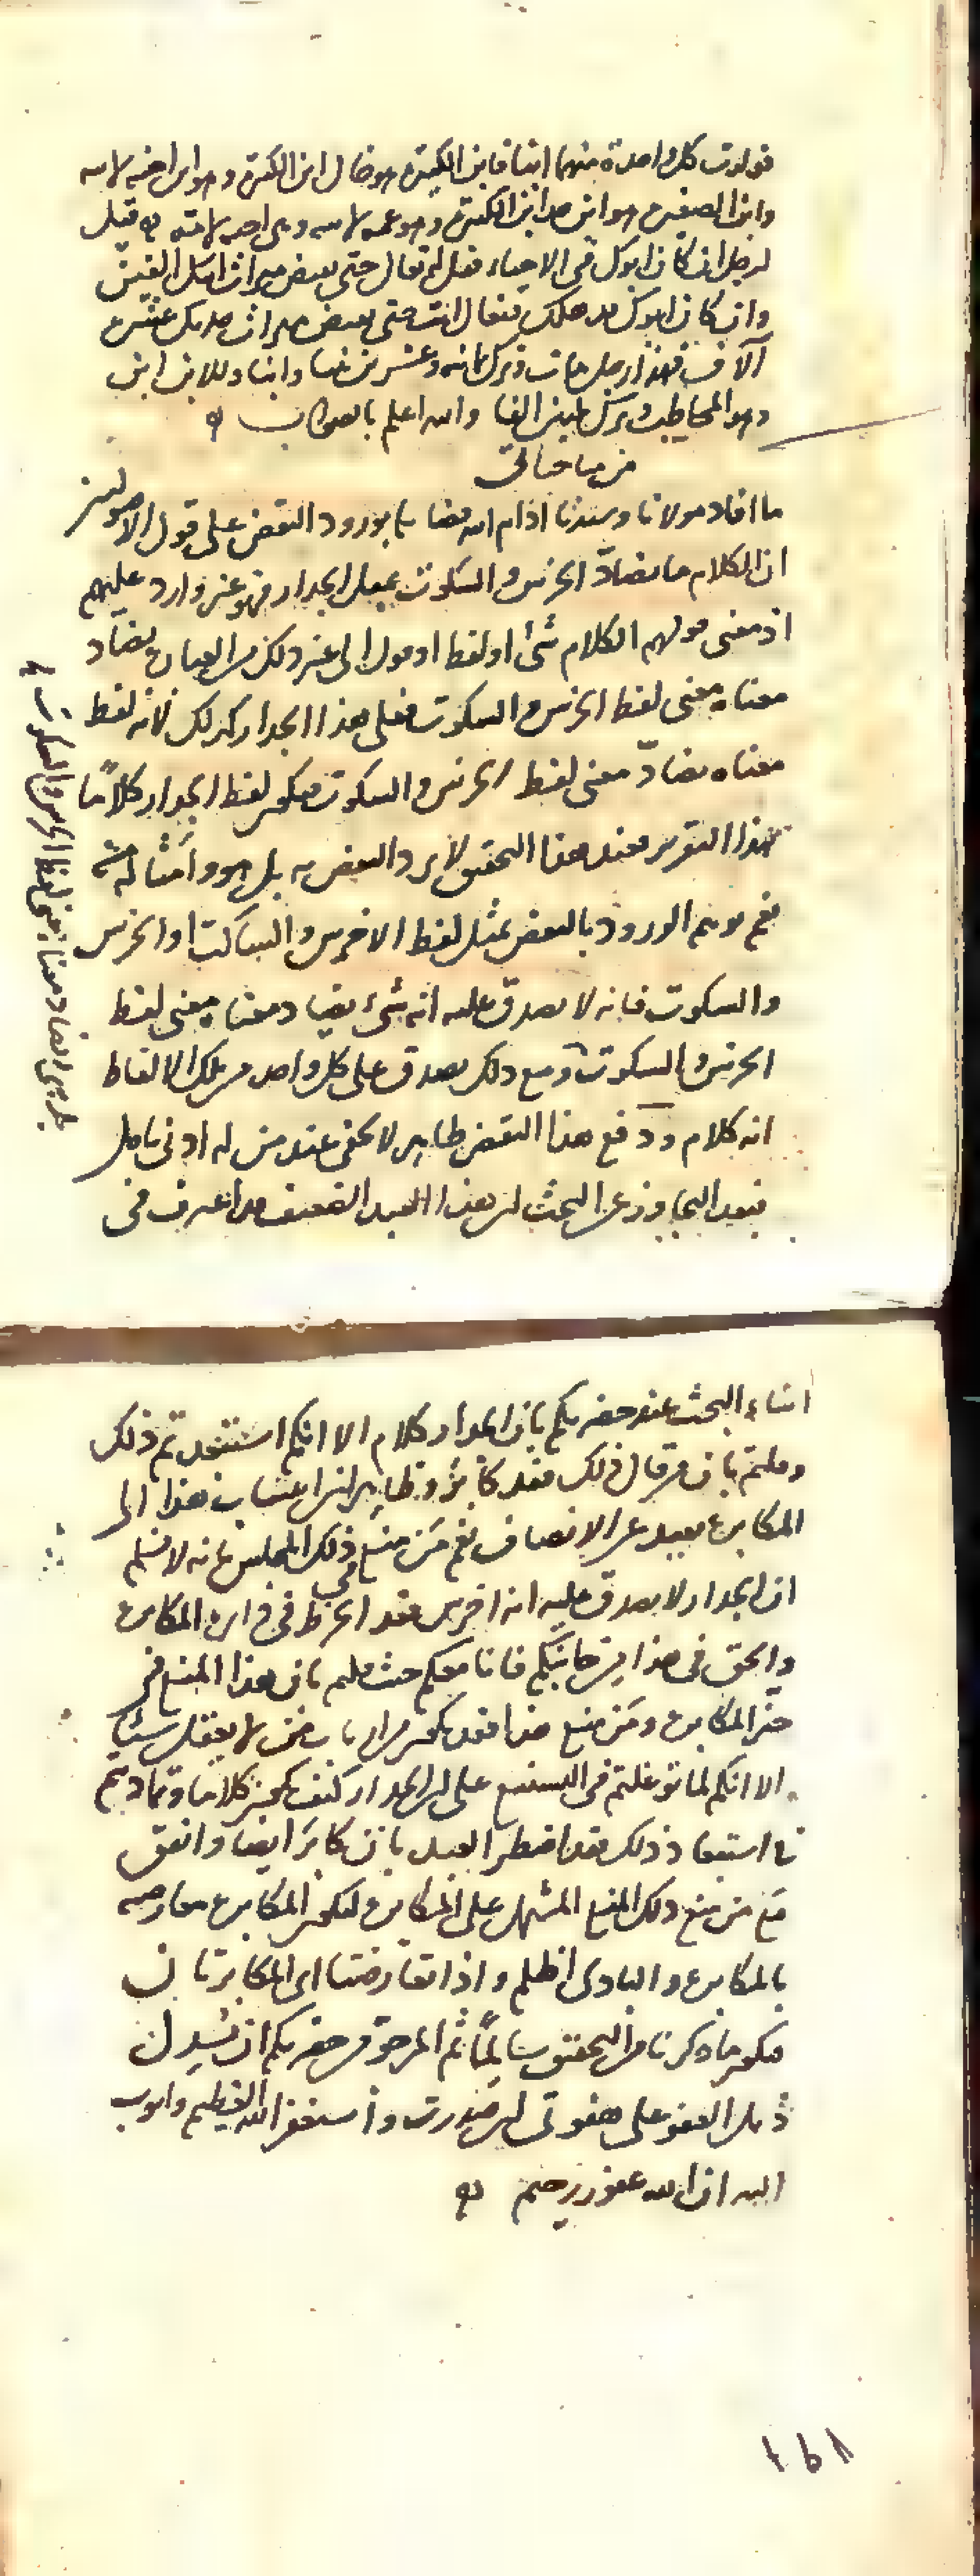 فولدت كل واحدة منهما ابنا فابن الكبيرة هو خال ابن الكبيرة وهو ابن اخيه لامه
وابن الصغيرة هو ابن ابن الكبيرة وهو عمه لامه قيل
لرجل ان كان ابوك في الاحياء فقل له تعال حتى ميراث الفين
وان كان ابوك قد هلك فتعال انت حتى ميراث جدك عشرة
آلاف فهذا رجل مات وترك ثمانية وعشرين بنتا وابنا وللابن ابن
وهو المخاطب وترك ثلثين الفا والله اعلم بالصواب
ما افاد مولانا وسندنا ادام الله بورود النقض على قول الاصوليين
ان الكلام ما يضاد الخرس والسكوت بمثل الجدار فهو غير وارد عليهم
اذ معنى قولهم الكلام شئ او لفظ او قول الى غير ذلك من العبارات يضاد
معناه معنى لفظ الخرس والسكوت فعلى هذا الجدار كذلك لانه لفظ
معناه يضاد معنى لفظ الخرس والسكوت فيكون لفظ الجدار كلاما
بهذا التقرير فعند هذا التحقيق لا يرد النقض به بل هو وامثاله منه
نعم توهم الورود بالنقض بمثل لفظ الاخرس والساكت او الخرس
والسكوت فانه لا يصدق عليه انه شئ يضاد معناه معنى لفظ
الخرس والسكوت ومع ذلك يصدق على كل واحد من تلك الالفاظ
انه كلام ودفع هذا النقض ظاهر لا يخفى عند من له ادنى تامل
فبعد التجاوز عن البحث ان هذا العبد الضعيف قد اعترف في
بل شئ يضاد معناه معنى لفظ الخرس والسكوت
اثناء البحث عند حضرتكم بان الجدار كلام الا انكم استبعدتم ذلك
وقلتم بان من قال ذلك فقد كابر وظاهر ان انتساب هذا الى
المكابرة بعيد عن الانصاف نعم من منع في ذلك المجلس بانه لا نسلم
ان الجدار لا يصدق عليه انه اخرس فقد انخرط في المكابرة
والحق في هذا من جانبكم فانا معكم حيث قلتم بان هذا المنع في
حيز المكابرة ومن منع هذا فقد يكون من لا يعقل شيئا
الا انكم لما توغلتم في التشنيع على ان الجدار كيف يكون كلاما وتماديتم
في استبعاد ذلك فقد اضطر العبد بان كابر ايضا واتفق
مع من منع ذلك المنع المشتمل على المكابرة لتكون المكابرة معارضة
بالمكابرة والبادى اظلم واذا تعارضتا اى المكابرتان
فيكون ما ذكرنا من التحقيق سالما ثم المرجو من حضرتكم ان تسدل
ذيل العفو على هفوتى ان صدرت واستغفر الله العظيم واتوب
اليه ان الله غفور رحيم